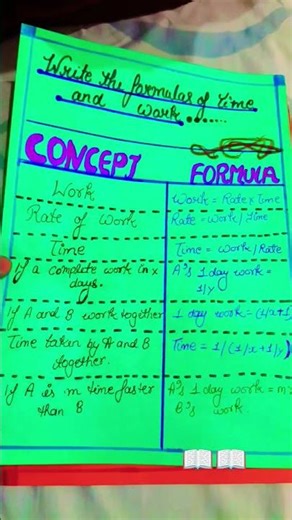 Write the formulas of time
and work.......
CONCEPT FORMULA
Work Work = Rate x Time
Rate of Work Rate = Work/Time
Time Time = Work/Rate
If a complete work in x days. A's 1 day work = 1/y
If A and B work together 1 day work = (1/x+1
Time taken by A and B together. Time = 1/(1/x+1/y)
If A is m time faster than B A's 1 day work = m
B's work.